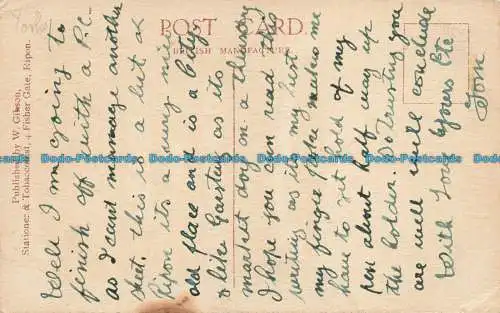 Yorks
POST CARD.
BRITISH MANUFACTURE.
Published by W. Gibson,
Stationer & Tobacconist, 4 Fisher Gate, Ripon.
Well I am going to
finish off with a P.C.
as I cant manage another
sheet. this is a bit of
Ripon its a jung nice
old place and is a City
& like Garstang as its
market day on a thursday
I hope you can read this
writing as its my last
my finger plague makes me
have to get hold of my
pen about half way up
the holder So trusting you
are well will conclude
With Love Yours Etc
Tom
Dodo-Postcards Dodo-Postcards Dodo-Postcards Dodo-Postcards Dodo-Postcards
Dodo-Postcards Dodo-Postcards Dodo-Postcards Dodo-Postcards Dodo-Postcards